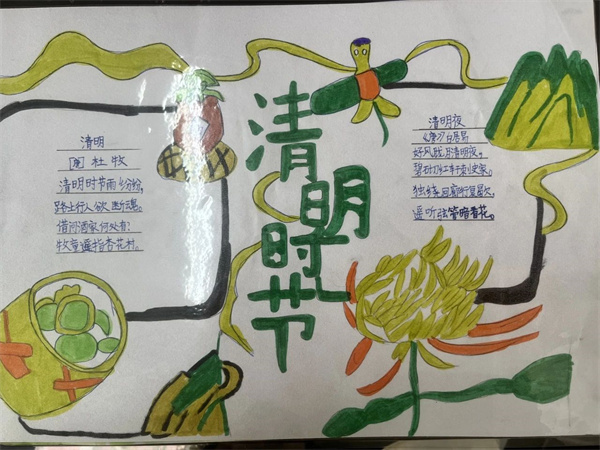 清明时节
清明
杜牧
清明时节雨纷纷,
路上行人欲断魂。
借问酒家何处有?
牧童遥指杏花村。
清明夜
白居易
好风胧月清明夜,
碧砌红轩刺史家。
独绕回廊行复歇,
遥听弦管暗看花。